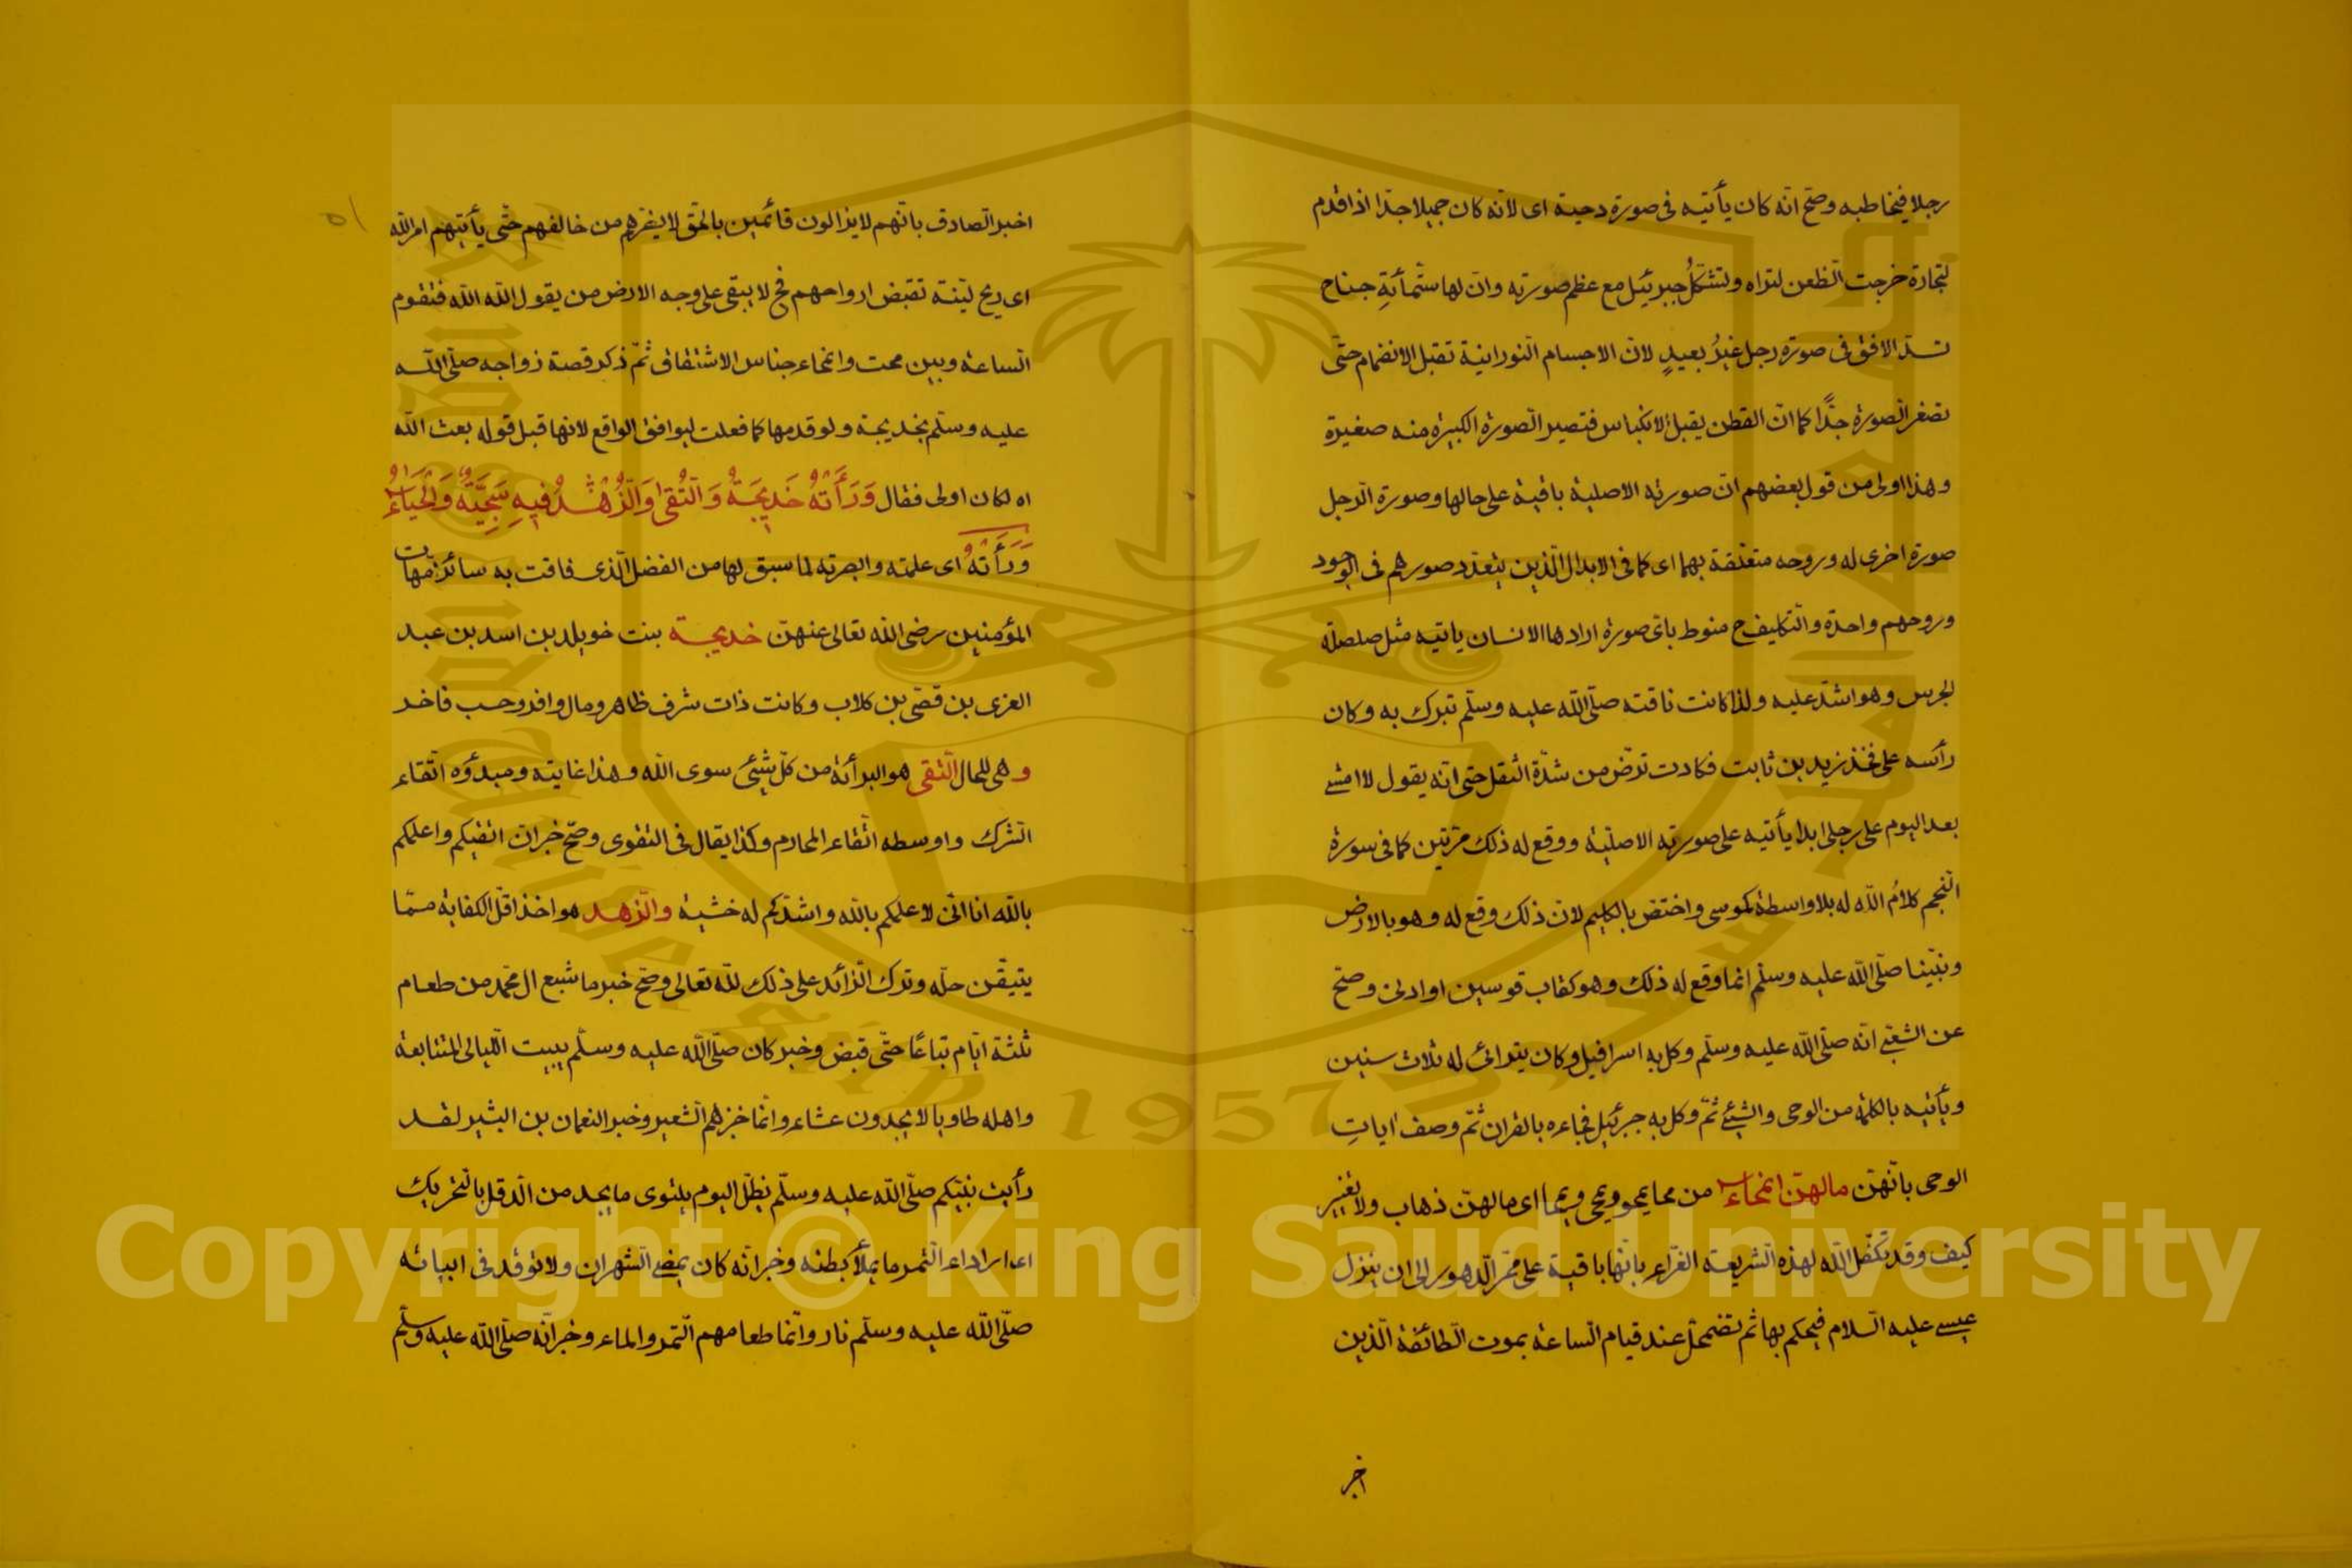 رجلا فيخاطبه وصح انه كان يأتيه فى صورة دحية اى لانه كان جميلا جدا اذا قدم
لتجارة خرجت الظعن لتراه وتشكّلُ جبرئيل مع عظم صورته وان لها ستمائةِ جناح
تسد الافق فى صورة رجل غيرُ بعيدٍ لان الاجسام النورانية تقبل الانضمام حتى
تصغر الصورة جدًّا كما ان القطن يقبل الانكباس فتصير الصورة الكبيرة منه صغيرة
وهذا اولى من قول بعضهم ان صورته الاصلية باقية على حالها وصورة الرجل
صورة اخرى له وروحه متعلقة بهما اى كما فى الابدال الذين يتعدد صورهم فى الوجود
وروحهم واحدة والتكليف ح منوط باى صورة ارادها الانسان ياتيه مثل صلصلة
الجرس وهو اشد عليه ولذا كانت ناقته صلّى الله عليه وسلّم تبرك به وكان
رأسه على فخذ زيد بن ثابت فكادت ترض من شدّة الثقل حتى انه يقول لا امشے
بعد اليوم على رجلى ابدا يأتيه على صورته الاصلية ووقع له ذلك مرتين كما فى سورة
النجم كلامُ الله له بلا واسطة كموسى واختص بالكليم لان ذلك وقع له وهو بالارض
ونبينا صلّى الله عليه وسلّم انما وقع له ذلك وهو كقاب قوسين او ادنى وصح
عن الشعبے انّه صلّى الله عليه وسلّم وكل به اسرافيل وكان يترائى له ثلاث سنين
ويأتيه بالكلمة من الوحى والشيئ ثمّ وكل به جبرئيل فجاءه بالقران ثمّ وصف ايات
الوحى بانّهن مالهن انمحاء من محا يمحو ويمحى ويمحا اى مالهن ذهاب ولا تغيير
كيف وقد تكفل الله لهذه الشريعة الغراء بانها باقية على ممرّ الدهور الى ان ينزل
عيسے عليه السلام فيحكم بها ثم تضمحل عند قيام الساعة بموت الطائفة الذين
اخبر
٥١
اخبر الصادق بانهم لا يزالون قائمين بالحق لا يضرهم من خالفهم حتى يأتيهم امر الله
اى ريح ليّنة تقبض ارواحهم فح لا يبقى على وجه الارض من يقول الله الله فتقوم
الساعة وبين محت وانمحاء جناس الاشتقاق ثمّ ذكر قصة زواجه صلّى الله
عليه وسلّم بخديجة ولو قدمها كما فعلت ليوافق الواقع لانها قبل قوله بعث الله
اه لكان اولى فقال وَرَأَتْهُ خَدِيجَةُ وَالتُّقَى وَالزُّهْدُ فِيهِ سَجِيَّةٌ وَالحَيَاءُ
وَرَأَتْهُ اى علمته وابصرته لما سبق لها من الفضل الذى فاقت به سائر امّهات
المؤمنين رضى الله تعالى عنهن خديجة بنت خويلد بن اسد بن عبد
العزى بن قصّى بن كلاب وكانت ذات شرف ظاهر ومال وافر وحسب فاخر
وهى للحال التقى هو البرأة من كل شيئ سوى الله وهذا غايته ومبدؤه اتقاء
الشرك واوسطه اتّقاء المحارم وكذا يقال فى التقوى وصح خبر ان اتقيكم واعلمكم
بالله انا انى لاعلمكم بالله واشدّكم له خشية والزهد هو اخذ اقل الكفاية ممّا
يتيقّن حلّه وترك الزائد على ذلك للّه تعالى وصح خبر ما شبع ال محمّد من طعام
ثلثة ايّام تباعًا حتّى قبض وخبر كان صلّى الله عليه وسلّم يبيت الليالى المتتابعة
واهله طاويا لا يجدون عشاء وانّما خبزهم الشعير وخبر النعمان بن البشير لقد
رأيت نبيّكم صلّى الله عليه وسلّم يظلّ اليوم يلتوى ما يجد من الدقل بالتحريك
اى ارداء التمر ما يملأ بطنه وخبر انّه كان يمضے الشهران ولا توقد فى ابياته
صلّى الله عليه وسلّم نار وانّما طعامهم التمر والماء وخبر انّه صلّى الله عليه وسلّم
Copyright © King Saud University
1957